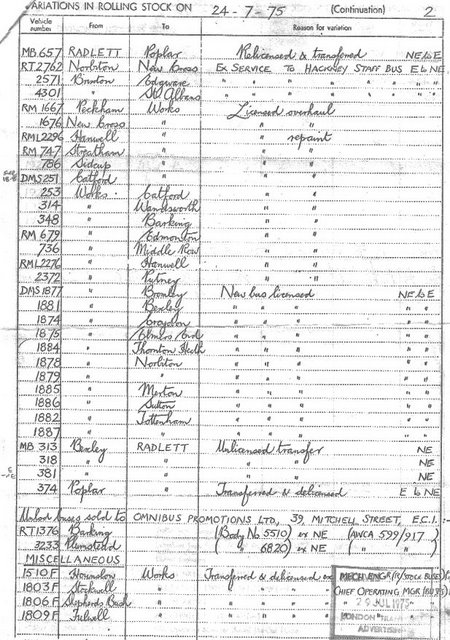 VARIATIONS IN ROLLING STOCK ON 24-7-75 (Continuation) 2
Vehicle number From To Reason for variation
MB 657 RADLETT Poplar Relicensed & transferred NE to E
RT 2762 Norbiton New Cross Ex SERVICE TO HACKNEY STAFF BUS E to NE
2571 Brixton Edgware " " " " " " " "
4301 " St Albans " " " " " " " "
RM 1667 Peckham Works Licensed overhaul
1676 New Cross " " "
RML 2296 Hanwell " " repaint
RM 747 Streatham " " "
786 Sidcup " " "
DMS 251 Catford " " "
253 Works Catford " "
314 " Wandsworth " "
348 " Barking " "
RM 679 " Edmonton " "
736 " Middle Row " "
RML 2276 " Hanwell " "
2372 " Putney " "
DMS 1877 " Bromley New bus licensed NE to E
1881 " Bexley " " " " "
1874 " Croydon " " " " "
1875 " Elmers End " " " " "
1884 " Thornton Heath " " " " "
1878 " Norbiton " " " " "
1879 " " " " " " "
1885 " Merton " " " " "
1886 " Sutton " " " " "
1882 " Tottenham " " " " "
1887 " " " " " " "
MB 313 Bexley RADLETT Unlicensed transfer NE
318 " " " " NE
381 " " " " NE
374 Poplar " Transferred & delicensed E to NE
Undod buses sold to OMNIBUS PROMOTIONS LTD, 39, MITCHELL STREET, E.C.1. :-
RT 1376 Barking (Body No 5510) ex NE (AWCA 599/917)
3233 Plumstead ( " 6820) ex NE ( " )
MISCELLANEOUS
1510 F Hounslow Works Transferred & delicensed
1803 F Stockwell " " "
1806 F Shepherds Bush " " "
1809 F Fulwell " " "
MECH. ENGR (R/STOCK BUSES)
CHIEF OPERATING MGR (BUSES)
29 JUL 1975
LONDON